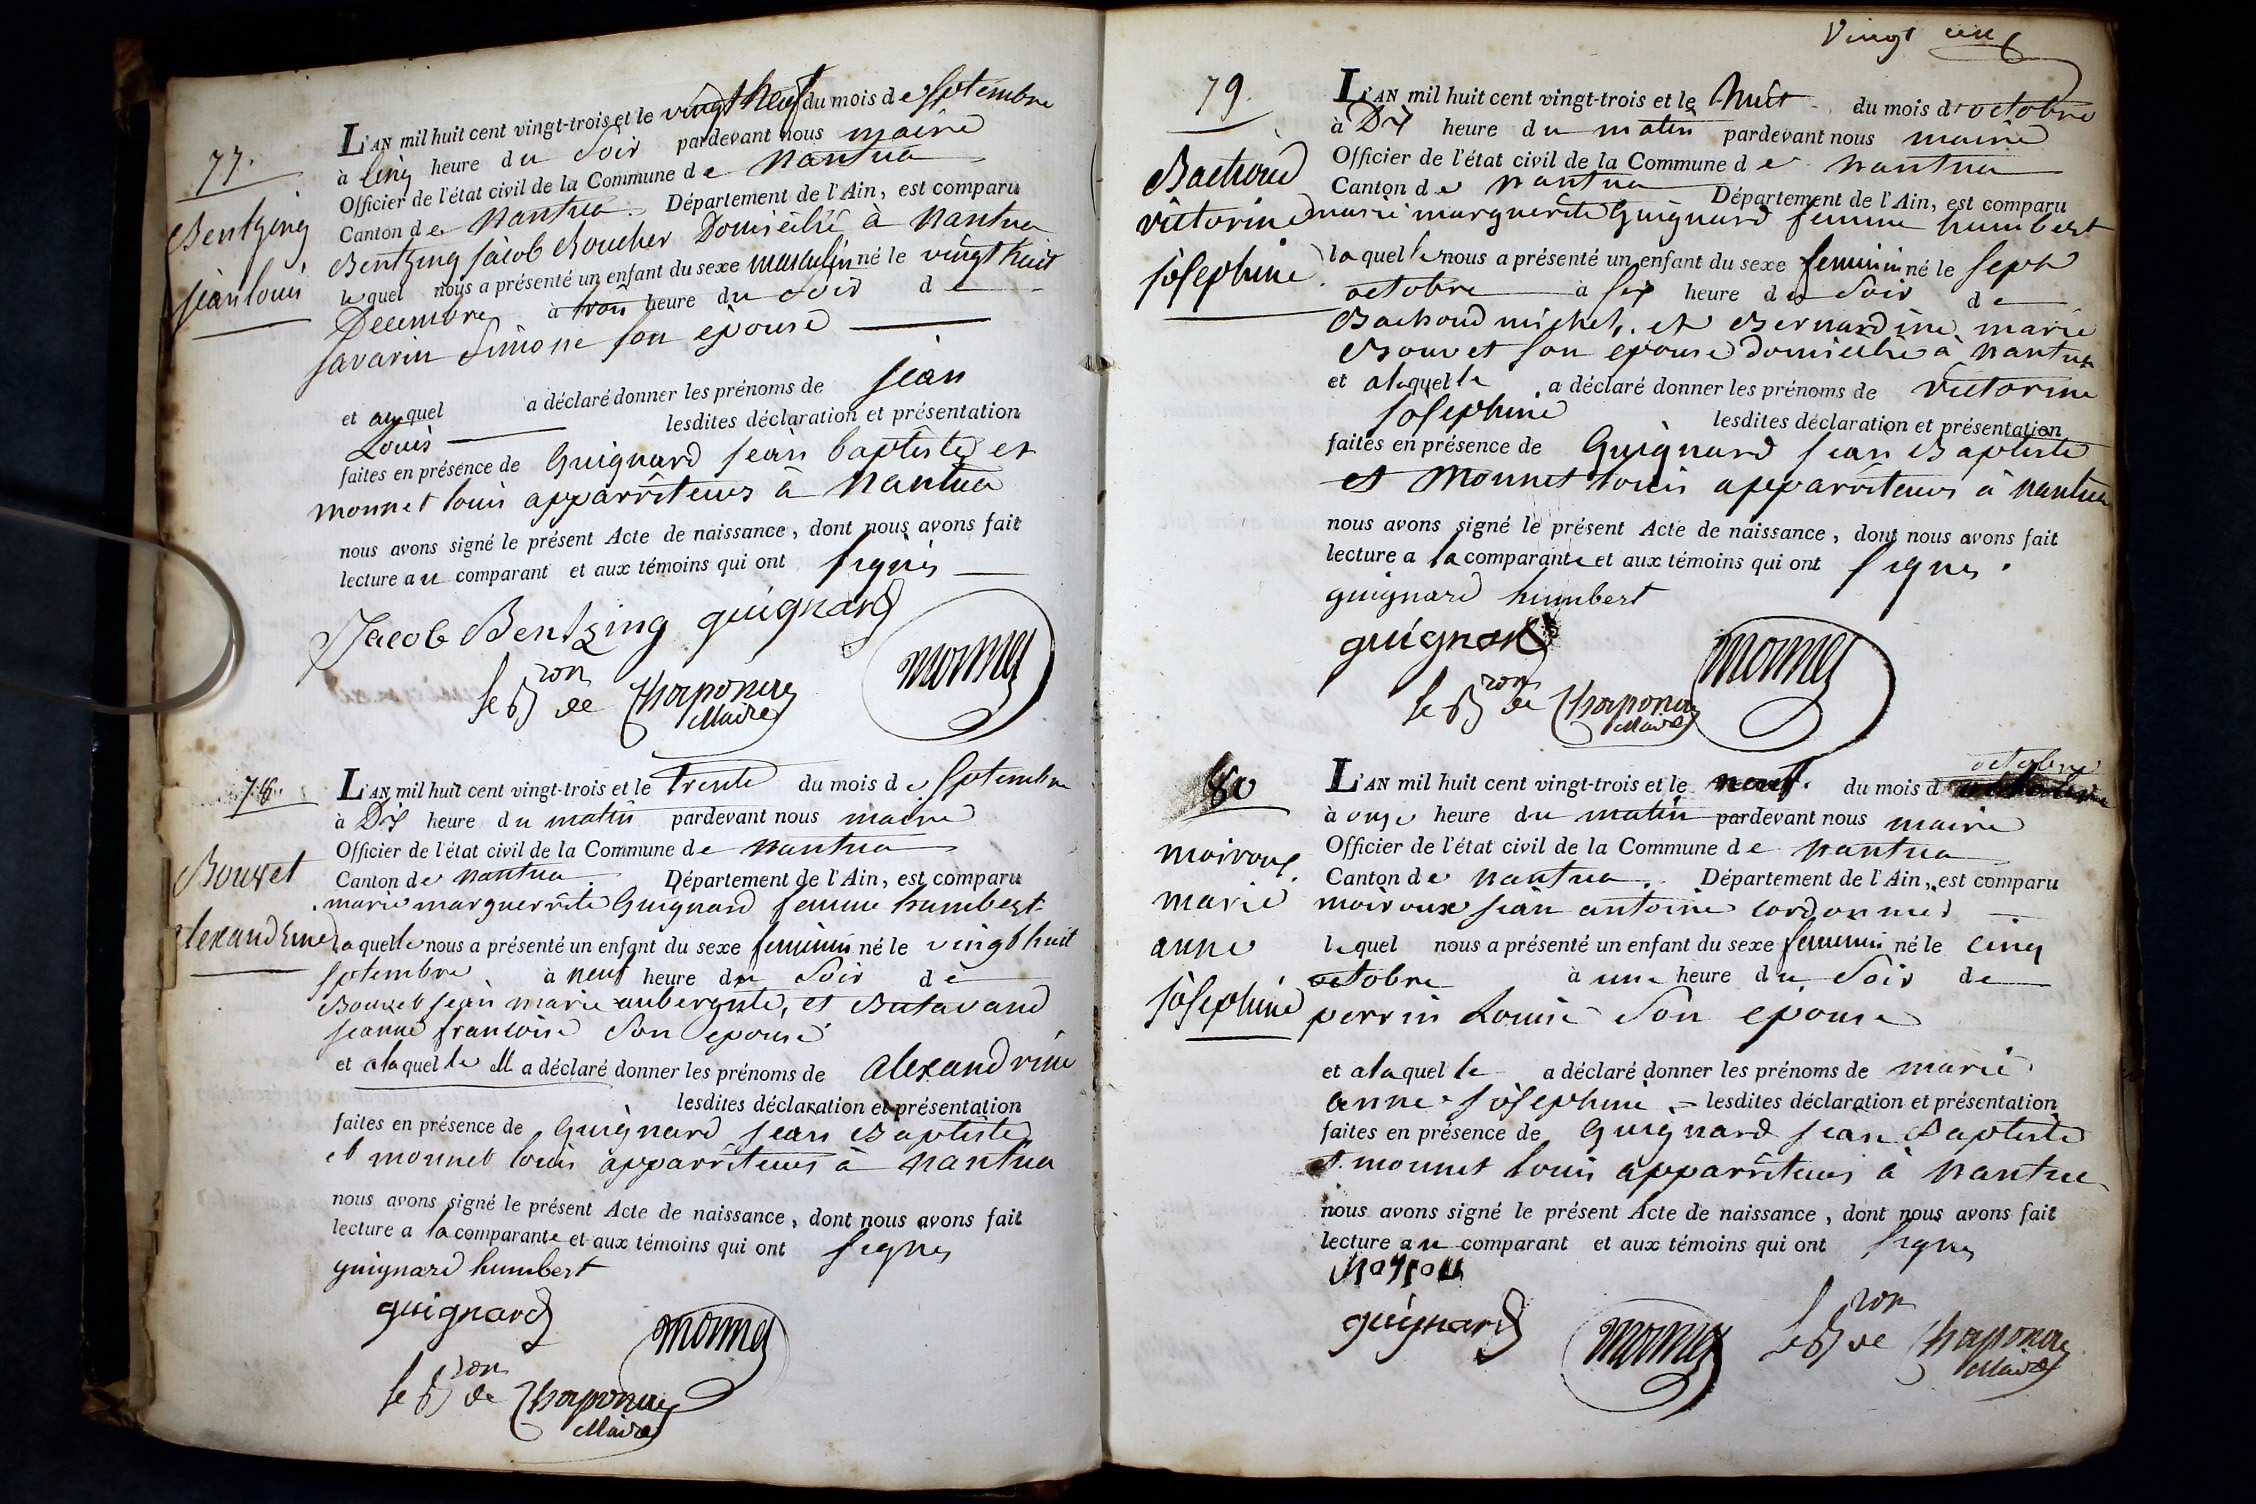 77.
Bentzing
jean louis
L'AN mil huit cent vingt-trois et le vingt neuf du mois de septembre
à cinq heure du soir pardevant nous maire
Officier de l'état civil de la Commune de nantua
Canton de nantua Département de l'Ain, est comparu
Bentzing jacob Boucher Domicilié à nantua
lequel nous a présenté un enfant du sexe masculin né le vingt huit
Decembre à trois heure du soir de
savarin Simone son epouse
et auquel a déclaré donner les prénoms de jean
Louis lesdites déclaration et présentation
faites en présence de Guignard jean baptiste et
monnet louis apparriteurs à nantua
nous avons signé le présent Acte de naissance, dont nous avons fait
lecture au comparant et aux témoins qui ont signés
Jacob Bentzing guignard
monnet
le Bron de
Maire
78.
Bouvet
alexandrine
L'AN mil huit cent vingt-trois et le trente du mois de septembre
à Dix heure du matin pardevant nous maire
Officier de l'état civil de la Commune de nantua
Canton de nantua. Département de l'Ain, est comparu
marie marguerite Guignard femme humbert
laquelle nous a présenté un enfant du sexe feminin né le vingt huit
septembre à neuf heure du soir de
Bouvet jean marie aubergiste, et Butavand
jeanne francoise son epouse
et alaquelle a déclaré donner les prénoms de alexandrine
lesdites déclaration et présentation
faites en présence de Guignard jean Baptiste
et monnet louis apparriteurs à nantua
nous avons signé le présent Acte de naissance, dont nous avons fait
lecture a la comparante et aux témoins qui ont signés
guignard humbert
guignard
monnet
le Bron de
Maire
Vingt cinq
79.
Bachoud
victorine
josephine
L'AN mil huit cent vingt-trois et le huit du mois d'octobre
à Dix heure du matin pardevant nous maire
Officier de l'état civil de la Commune de nantua
Canton de nantua Département de l'Ain, est comparu
marie marguerite Guignard femme humbert
laquelle nous a présenté un enfant du sexe feminin né le sept
octobre à six heure du soir de
Bachoud michel, et Bernardine marie
Bouvet son epouse domicilié à nantua
et alaquelle a déclaré donner les prénoms de victorine
josephine lesdites déclaration et présentation
faites en présence de Guignard jean Baptiste
et monnet louis apparriteurs à nantua
nous avons signé le présent Acte de naissance, dont nous avons fait
lecture a la comparante et aux témoins qui ont signés.
guignard humbert
guignard
monnet
le Bron de
Maire
80
moiroux
marie
anne
josephine
L'AN mil huit cent vingt-trois et le neuf. du mois d octobre
à onze heure du matin pardevant nous maire
Officier de l'état civil de la Commune de nantua
Canton de nantua. Département de l'Ain, est comparu
moiroux jean antoine cordonnier
lequel nous a présenté un enfant du sexe feminin né le cinq
octobre à une heure du soir de
perrin Louise son epouse
et alaquelle a déclaré donner les prénoms de marie
anne josephine lesdites déclaration et présentation
faites en présence de Guignard jean Baptiste
et monnet louis apparriteurs à nantua
nous avons signé le présent Acte de naissance, dont nous avons fait
lecture au comparant et aux témoins qui ont signés
guignard
monnet
le Bron de
Maire